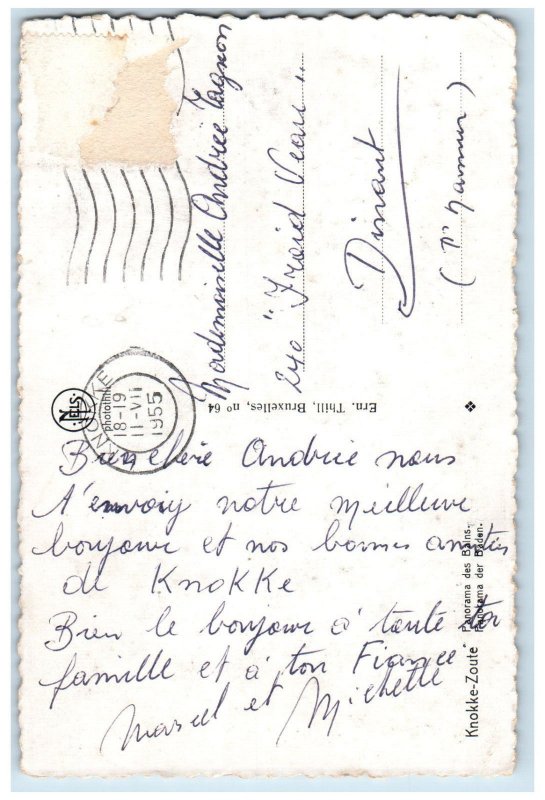 Bien chère Andrée nous
t'envoiy notre meilleure
bonjour et nos bonnes amitiés
de KNOKKE
Bien le bonjour à toute ta
famille et à ton Fiancé
Marcel et Michelle
Mademoiselle Andrée Tagnon
240 "Froid Veau"
Dinant
(Pr Namur)
KNOKKE
18-19
11-VII
1955
NELS
photothill
Ern. Thill, Bruxelles, nº 64
Knokke-Zoute
Panorama des Bains.
Panorama der Baden.